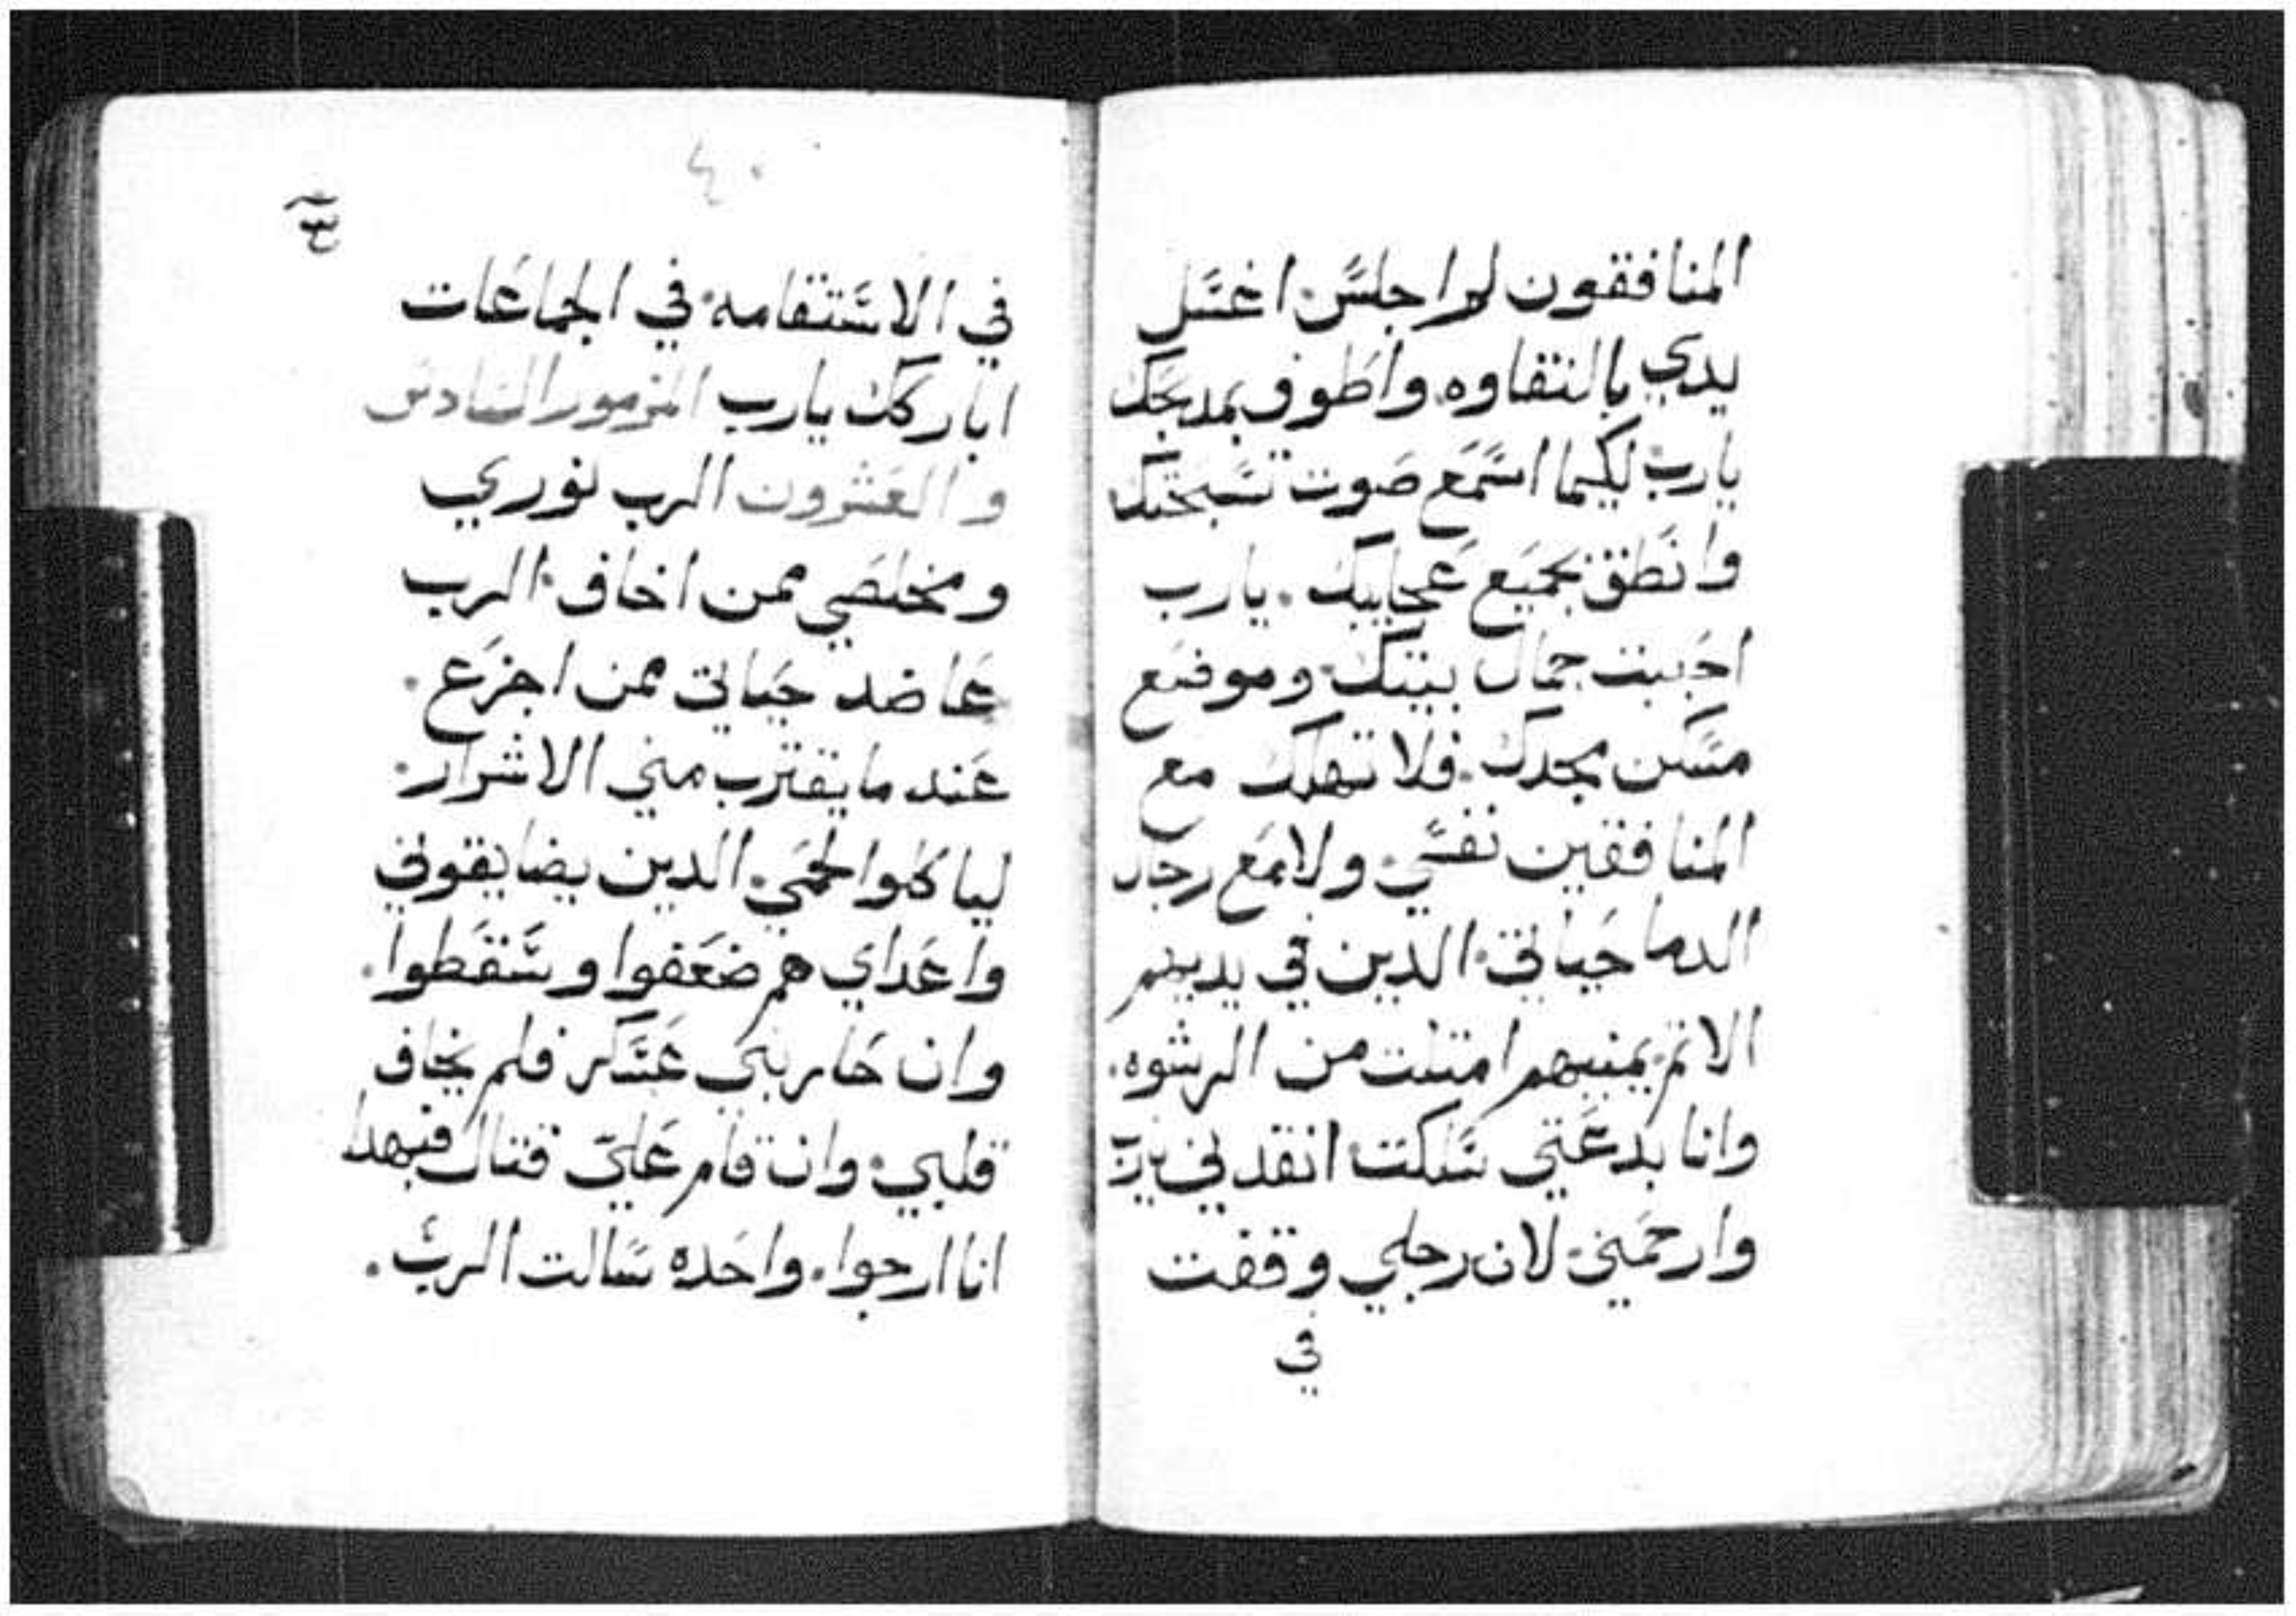 المنافقون لم اجلس. اغسل
يدي بالنقاوه. واطوف بمدبحك
يارب لكيما اسمع صوت تسبحتك
وانطق بجميع عجايبك. يارب
احببت جمال بيتك. وموضع
مسكن مجدك. فلا تهلك مع
المنافقين نفسي. ولا مع رجال
الدما حياتي. الدين في يديهم
الاتم. يمنيهم امتلت من الرشوه.
وانا بدعتي سلكت. انقدني يارب
وارحمني. لان رجلي وقفت
في
٤٠
في الاستقامه. في الجماعات
اباركك يارب المزمور السادس
والعشرون الرب نوري
ومخلصي ممن اخاف. الرب
عاضد حياتي ممن اجزع.
عند ما يقترب مني الاشرار.
لياكلوا لحمي. الدين يضايقوني
واعداي هم ضعفوا وسقطوا.
وان حاربني عسكر فلم يخاف
قلبي. وان قام علي قتال فبهدا
انا ارجوا. واحده سالت الرب.